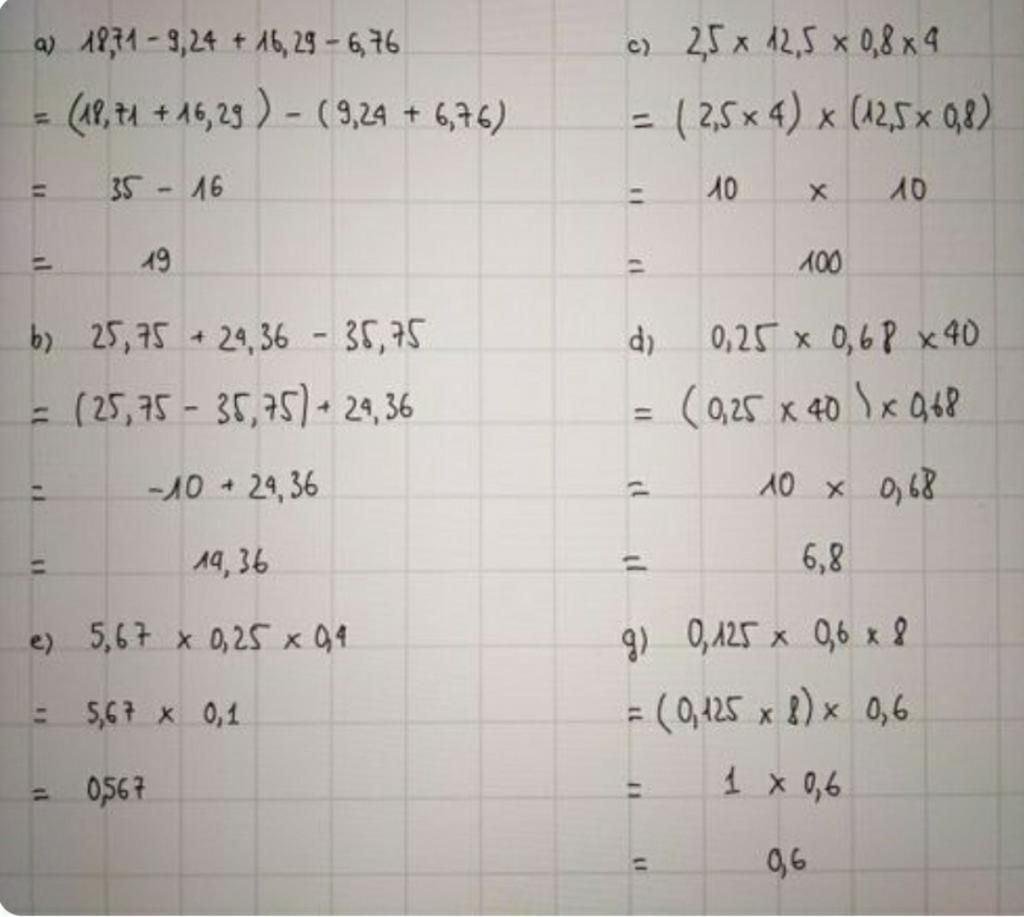 a) 18,71 - 9,24 + 16,29 - 6,76
= (18,71 + 16,29) - (9,24 + 6,76)
= 35 - 16
= 19
b) 25,75 + 24,36 - 35,75
= (25,75 - 35,75) + 24,36
= -10 + 24,36
= 14,36
e) 5,67 × 0,25 × 0,4
= 5,67 × 0,1
= 0,567
c) 2,5 × 12,5 × 0,8 × 4
= (2,5 × 4) × (12,5 × 0,8)
= 10 × 10
= 100
d) 0,25 × 0,68 × 40
= (0,25 × 40) × 0,68
= 10 × 0,68
= 6,8
g) 0,125 × 0,6 × 8
= (0,125 × 8) × 0,6
= 1 × 0,6
= 0,6